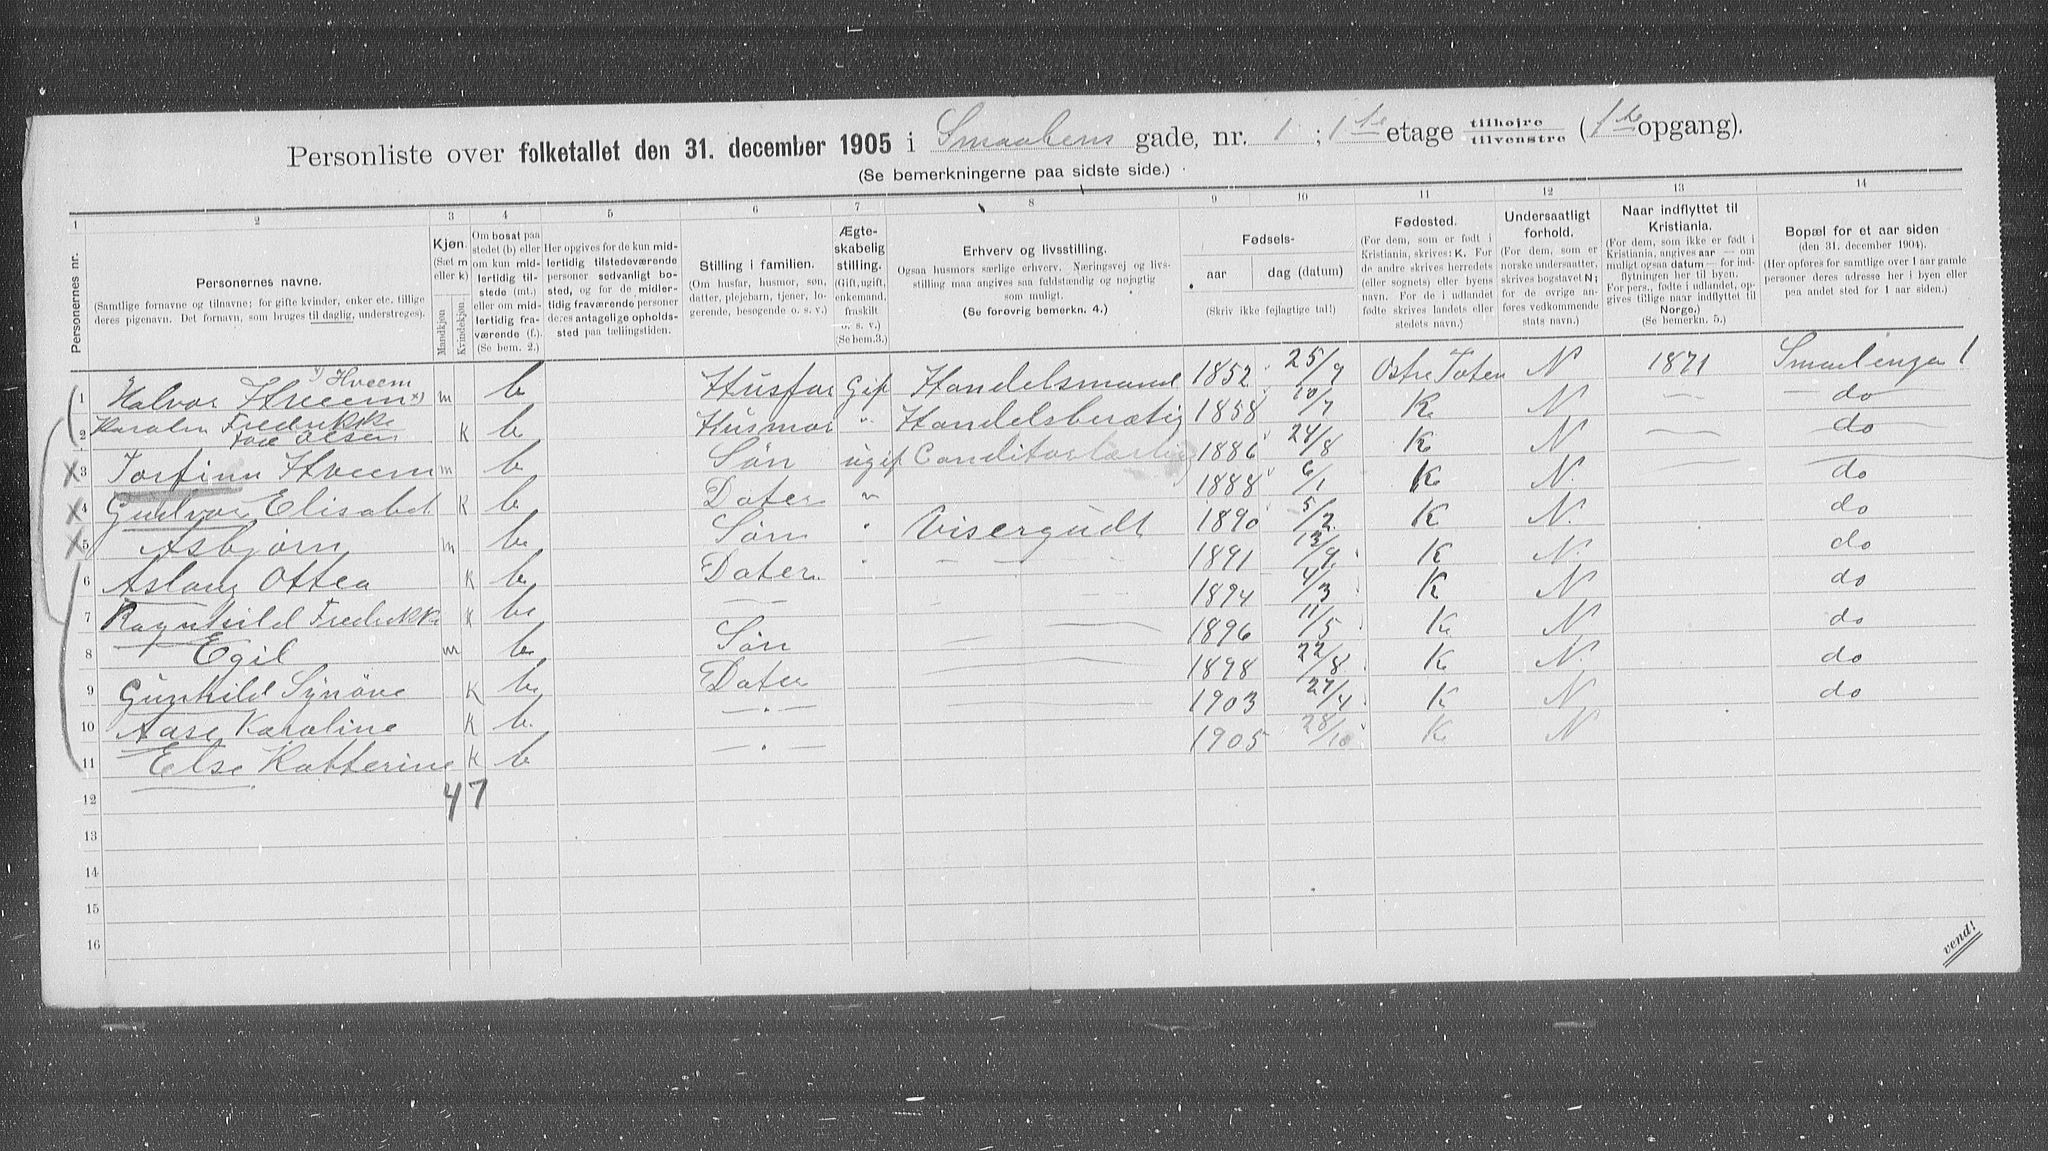 Personliste over folketallet den 31. december 1905 i Smaalens gade, nr. 1 ; 1ste etage tilhøjre tilvenstre (1ste opgang).
(Se bemerkningerne paa sidste side.)
1 2 3 4 5 6 7 8 9 10 11 12 13 14
Personernes nr.
Personernes navne.
(Samtlige fornavne og tilnavne; for gifte kvinder, enker etc. tillige
deres pigenavn. Det fornavn, som bruges til daglig, understreges).
Kjøn.
(Sæt m
eller k)
Mandkjøn
Kvindekjøn
Om bosat paa
stedet (b) eller
om kun mid-
lertidig til-
stede (mt.)
eller om mid-
lertidig fra-
værende (f.).
(Se bem. 2.)
Her opgives for de kun mid-
lertidig tilstedeværende
personer sedvanligt bo-
sted, og for de midler-
tidig fraværende personer
deres antagelige opholds-
sted paa tællingstiden.
Stilling i familien.
(Om husfar, husmor, søn,
datter, plejebarn, tjener, lo-
gerende, besøgende o. s. v.)
Ægte-
skabelig
stilling.
(Gift, ugift,
enkemand,
fraskilt
o. s. v.)
(Se bem.3.)
Erhverv og livsstilling.
Ogsaa husmors særlige erhverv. Næringsvej og livs-
stilling maa angives saa fuldstændig og nøjagtig
som muligt.
(Se forøvrig bemerkn. 4.)
Fødsels-
aar
dag (datum)
(Skriv ikke fejlagtige tal!)
Fødested.
(For dem, som er født i
Kristiania, skrives: K. For
de andre skrives herredets
(eller sognets) eller byens
navn. For de i udlandet
fødte skrives landets eller
stedets navn.)
Undersaatligt
forhold.
(For dem, som er
norske undersaatter,
skrives bogstavet N;
for de øvrige an-
føres vedkommende
stats navn.)
Naar indflyttet til
Kristiania.
(For dem, som ikke er født i
Kristiania, angives aar — om
muligt ogsaa datum — for ind-
flytningen her til byen.
For pers., fødte i udlandet, op-
gives tillige naar indflyttet til
Norge.)
(Se bemerkn. 5.)
Bopæl for et aar siden
(den 31. december 1904).
(Her opføres for samtlige over 1 aar gamle
personer deres adresse her i byen eller
paa andet sted for 1 aar siden.)
x) Hveem
1 Halvor Hveem x) m b Husfar Gift Handelsmand 1852 25/9 Østre Toten N 1871 Smaalengen 1
2 Karolin Fredrikke k b Husmor " Handelsberetig 1858 10/7 K N — do
fød Olsen
3 Torfinn Hveem m b Søn ugift 1886 24/8 K N do
4 Gudvor Elisabet k b Dater " 1888 6/1 K N. do
5 Asbjørn m b Søn " Visergudt 1890 5/2 K N. do
6 Aslaug Ottea k b Dater " 1891 13/9 K N. do
7 Ragnhild Fredrikke k b — 1894 4/3 K N do
8 Egil m b Søn 1896 11/5 K N do
9 Gunhild Synøve k b Dater 1898 22/8 K N. do
10 Aase Karoline k b. — " — 1903 27/4 K N do
11 Else Katterine k b — " — 1905 28/10 K N
12 4 7
13
14
15
16
vend!